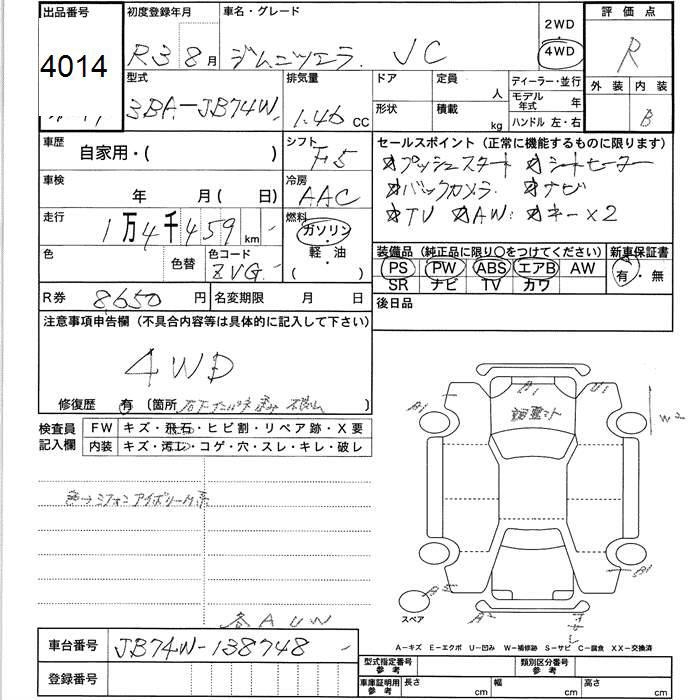 出品番号
4014
初度登録年月
R3 8月
車名・グレード
ジムニーシエラ JC
2WD
4WD
評価点
R
外装 内装
B
型式
3BA-JB74W
排気量
1.46 CC
ドア
定員
人
形状
積載
kg
ディーラー・並行
モデル年式 年
ハンドル 左・右
車歴
自家用・( )
シフト
F5
車検
年 月( 日)
冷房
AAC
走行
1万4千459 km
燃料
ガソリン・軽油
( )
色
色替
色コード
ZVG
R券 8,650 円
名変期限 月 日
セールスポイント (正常に機能するものに限ります)
☆プッシュスタート ☆シートヒーター
☆バックカメラ ☆ナビ
☆TV ☆AW ☆キー×2
装備品 (純正品に限り○をつけてください)
PS PW ABS エアB AW
SR ナビ TV カワ
新車保証書
有・無
後日品
注意事項申告欄 (不具合内容等は具体的に記入して下さい)
4WD
修復歴 有 (箇所
検査員記入欄
FW キズ・飛石・ヒビ割・リペア跡・X要
内装 キズ・汚れ・コゲ・穴・スレ・キレ・破レ
色→シフォンアイボリーM系
各AUW
調整シト
A1
U1
A1
W2
スペア
A-キズ E-エクボ U-凹み W-補修跡 S-サビ C-腐食 XX-交換済
車台番号
JB74W-138748
登録番号
型式指定番号 参考
類別区分番号 参考
車庫証明用 参考
長さ cm
幅 cm
高さ cm